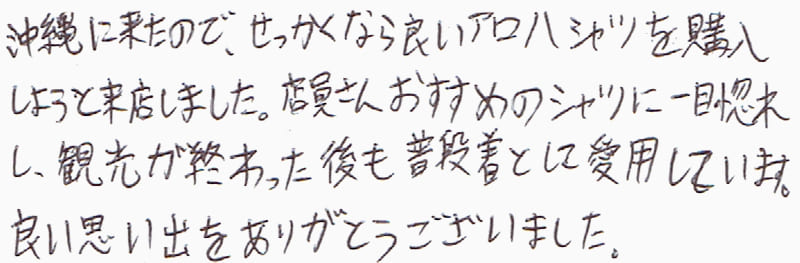 沖縄に来たので、せっかくなら良いアロハシャツを購入
しようと来店しました。店員さんおすすめのシャツに一目惚れ
し、観光が終わった後も普段着として愛用しています。
良い思い出をありがとうございました。